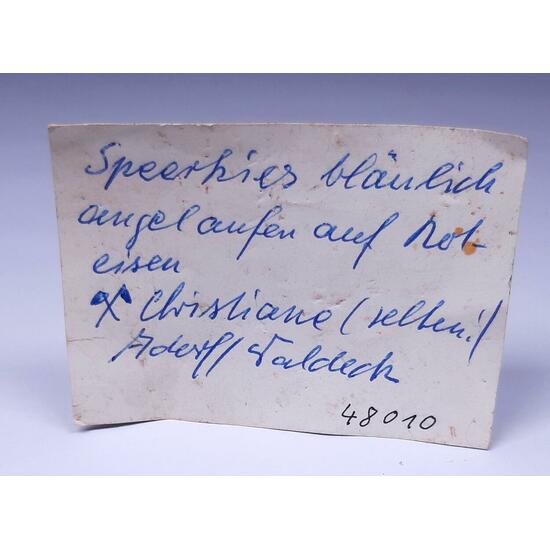 Speerkies bläulich
angelaufen auf Rot-
eisen
X Christiane (selten!)
Adorf / Waldeck
48010